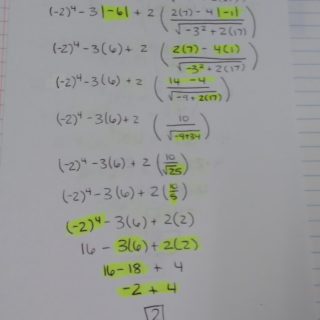 (-2)⁴ - 3|-6| + 2 ( (2(7) - 4|-1|) / √(-3² + 2(17)) )
(-2)⁴ - 3(6) + 2 ( (2(7) - 4(1)) / √(-3² + 2(17)) )
(-2)⁴ - 3(6) + 2 ( (14 - 4) / √(-9 + 2(17)) )
(-2)⁴ - 3(6) + 2 ( 10 / √(-9+34) )
(-2)⁴ - 3(6) + 2 ( 10 / √25 )
(-2)⁴ - 3(6) + 2 ( 10 / 5 )
(-2)⁴ - 3(6) + 2(2)
16 - 3(6) + 2(2)
16 - 18 + 4
-2 + 4
2